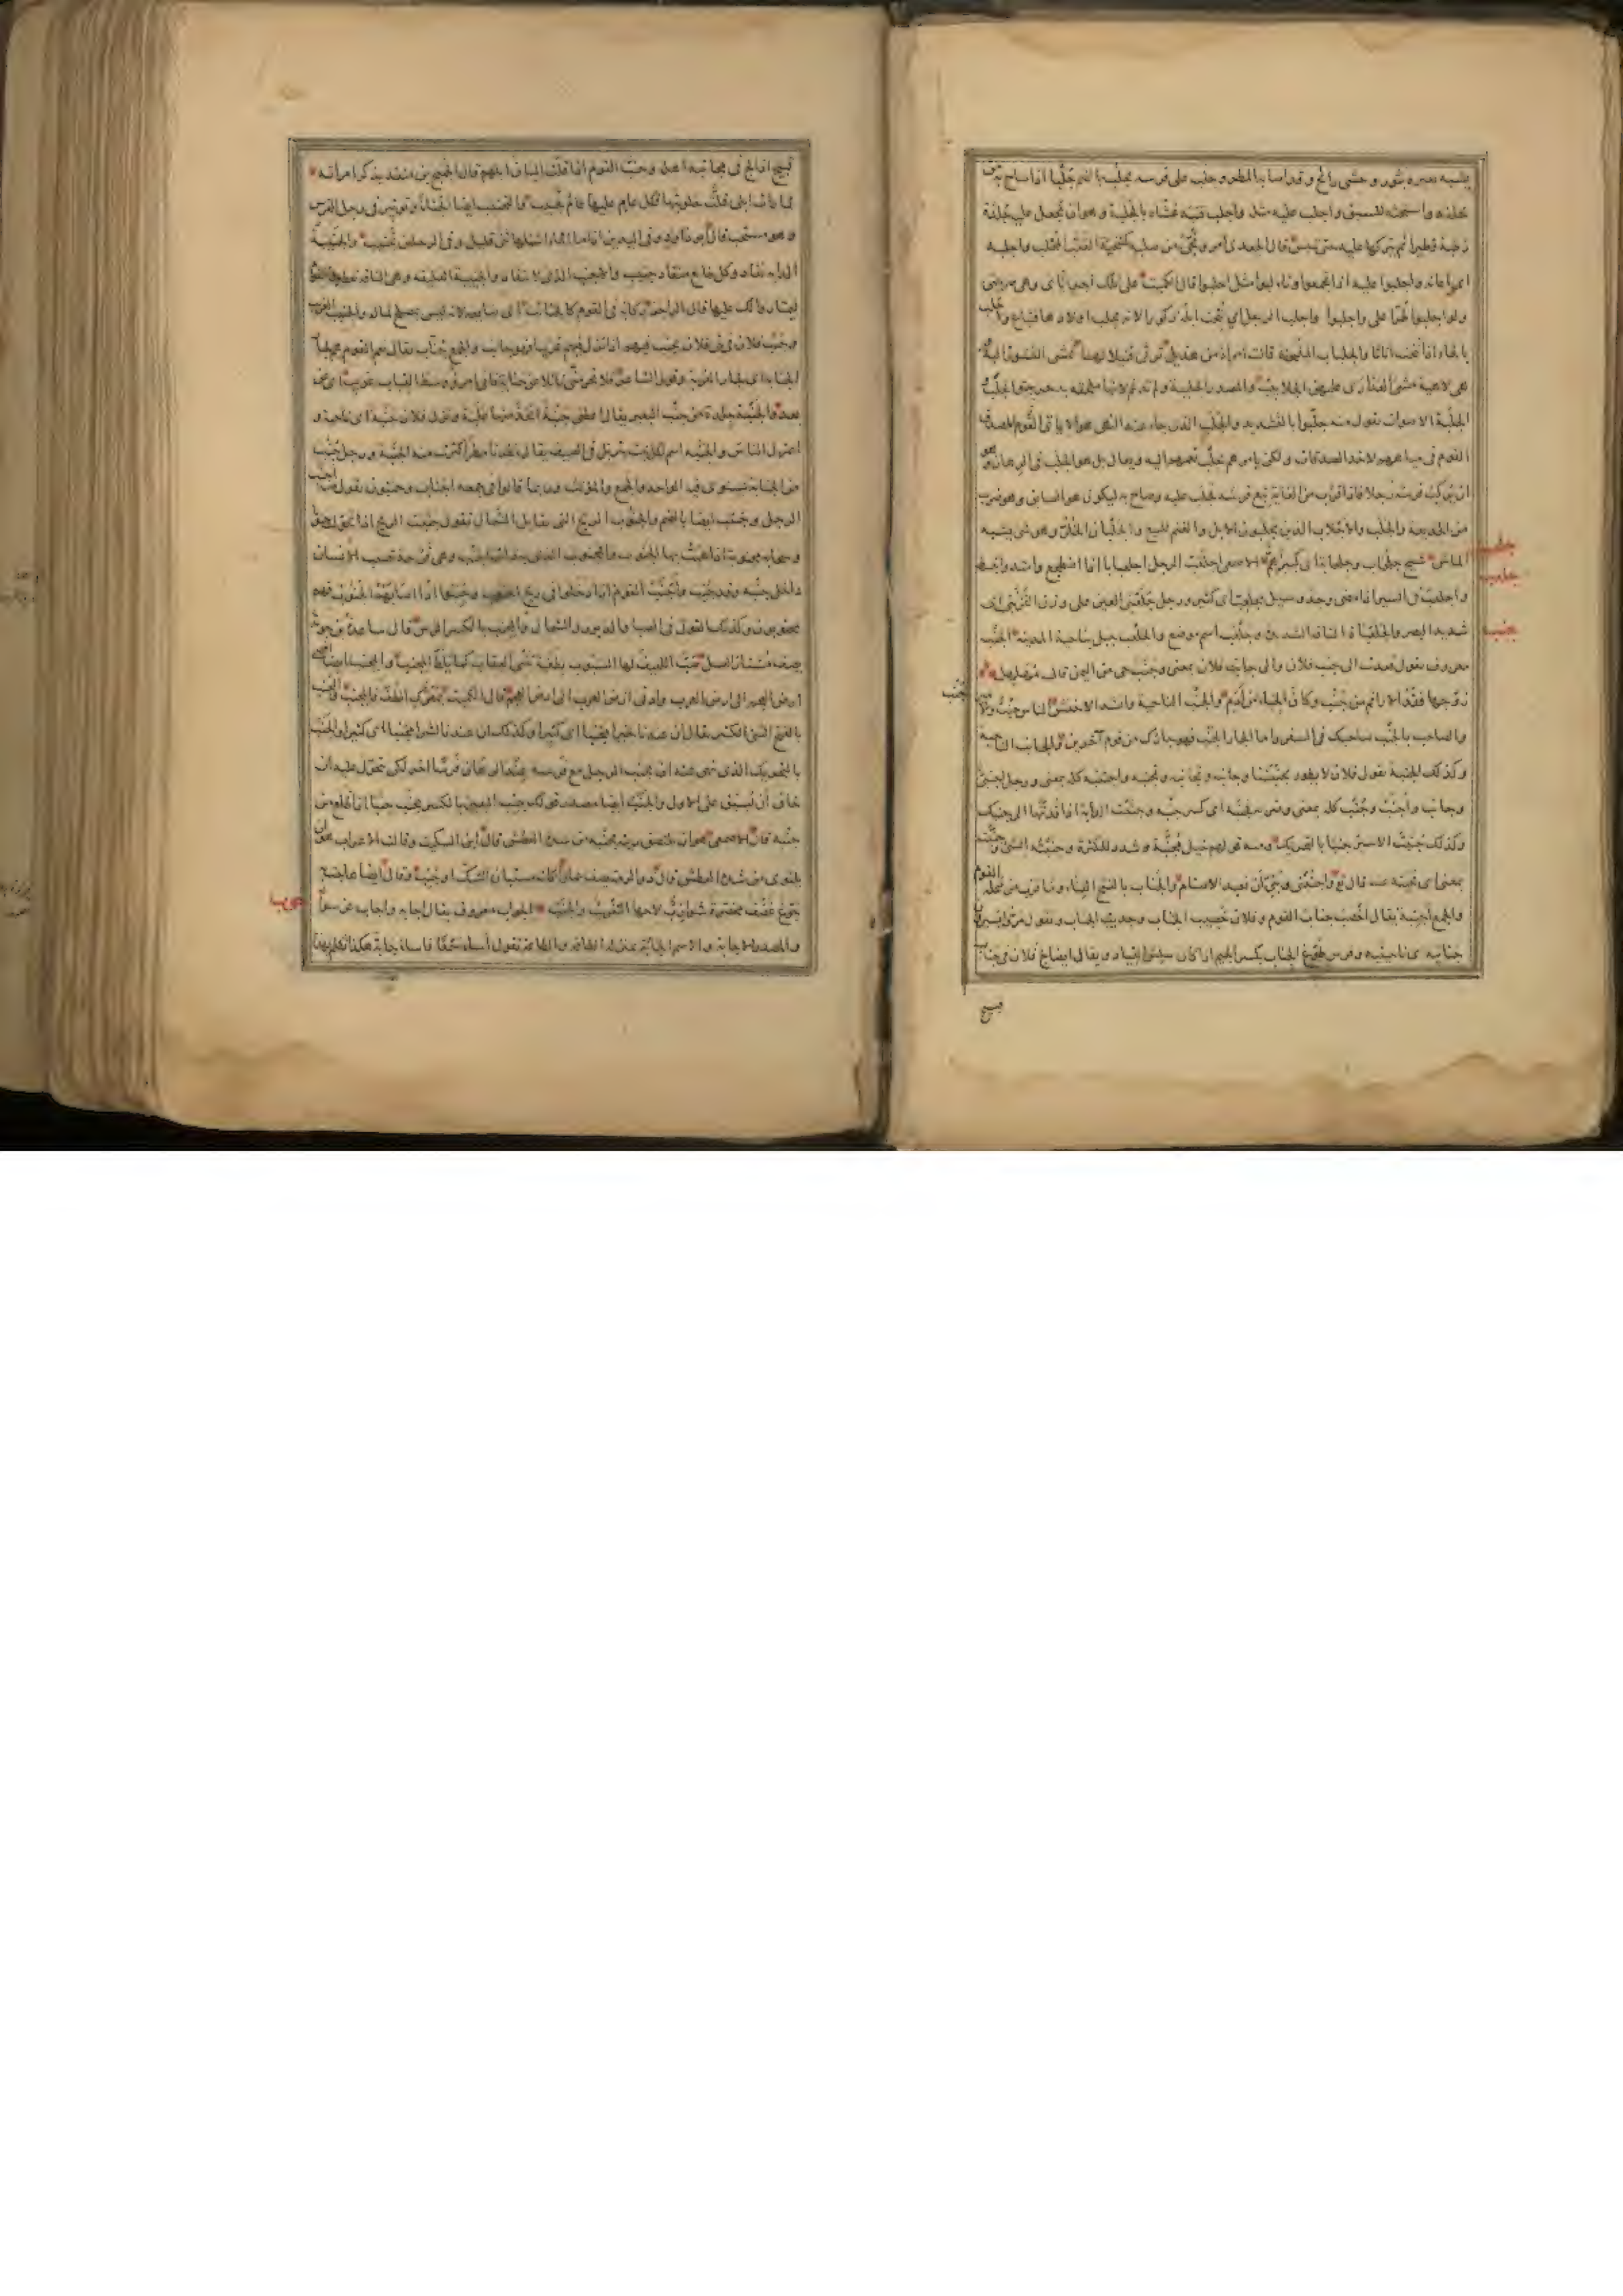 يشبه بعيره بثور وحشي رائح وقد اصابه المطر وجلب على فرسه يجلب بالضم جلبا اذا صاح به من
خلفه واستحثه للسبق واجلب عليه مثله واجلب قتبه غشاه بالجلبة وهو ان تجعل عليه جلدة
رطبة فطيرا ثم يتركها عليه حتى تيبس قال الجعدي امر ونحي من صلبه كتنحية القتب المجلب واجلبه
اي اعانه واجلبوا عليه اذا تجمعوا وتالبوا مثل احلبوا قال الكميت على تلك اجرياي وهي ضريبتي
ولو اجلبوا طرا علي واحلبوا واجلب الرجل اي نتجت ابله ذكورا لانه يجلب اولادها فتباع واحلب
بالحاء اذا نتجت اناثا والجلباب الملحفة قالت امراة من هذيل ترثي قتيلا تمشي النسور اليه
وهي لاهية مشي العذارى عليهن الجلابيب والمصدر الجلببة ولم تدغم لانها ملحقة بدحرجة والجلب
والجلبة الاصوات تقول منه جلبوا بالتشديد والجلب الذي جاء عنه النهي هو ان لا ياتي المصدق
القوم في مياههم لاخذ الصدقات ولكن يامرهم بجلب نعمهم اليه ويقال بل هو الجلب في الرهان وهو
ان يركب فرسه رجلا فاذا قرب من الغاية تبع فرسه فجلب عليه وصاح به ليكون هو السابق وهو ضرب
من الخديعة والجلب والاجلاب الذين يجلبون الابل والغنم للبيع والجلبان الخلر وهو شيء يشبه
الماش شيخ جلحاب وجلحابة اي كبير هم الاصمعي اجلعب الرجل اجلعبابا اذا اضطجع وامتد وانبسط
واجلعب في السير اذا مضى وجد وسيل مجلعب اي كثير ورجل جلعبى العين على وزن القرنبى اي
شديد البصر والجلعباة الناقة الشديدة وجلعب اسم موضع والجلعب جبل بناحية المدينة الجنب
معروف تقول قعدت الى جنب فلان والى جانب فلان بمعنى وجنب حي من اليمن قال مهلهل
زوجها فقدها الاراقم من جنب وكان الحباء من ادم والجنب الناحية وانشد الاخفش الناس جنب والامير جنب
والصاحب بالجنب صاحبك في السفر واما الجار الجنب فهو جارك من قوم آخرين والجانب الناحية
وكذلك الجنبة تقول فلان لا يطور بجنبتنا وجانبه وتجانبه وتجنبه واجتنبه كله بمعنى ورجل اجنبي
وجانب واجنب وجنب كله بمعنى وضربه فجنبه اي كسر جنبه وجنبت الدابة اذا قدتها الى جنبك
وكذلك جنبت الاسير جنبا بالتحريك ومنه قولهم خيل مجنبة وشدد للكثرة وجنبته الشيء وجنبته
بمعنى اي نحيته عنه قال تع واجنبني وبني ان نعبد الاصنام والجناب بالفتح الفناء وما قرب من محلة القوم
والجمع اجنبة يقال اخصب جناب القوم وفلان خصيب الجناب وجديب الجناب وتقول مروا يسيرون
جنابيه اي ناحيتيه وفرس طوع الجناب بكسر الجيم اذا كان سلس القياد ويقال ايضا لج فلان في جناب
قبيح
جلحب
جلعب
جنب
قبيح اذا لج في مجانبة اهله وجنب القوم اذا قلت البان ابلهم قال الجميح بن منقذ يذكر امراته
لما رات ابلي قلت حلوبتها فكل عام عليها عام تجنيب والتجنيب ايضا انحناء وتوتير في رجل الفرس
وهو مستحب قال ابو داود وفي اليدين اذا ما الماء اسهلها ثني قليل وفي الرجلين تجنيب والجنيبة
الدابة تقاد وكل طائع منقاد جنيب والاجنب الذي لا ينقاد والجنيبة العليقة وهي الناقة تعطيها القوم
ليمتاروا لك عليها قال الراجز ركابه في القوم كالجنائب اي ضايعة لانه ليس بمصلح لماله والجنيب الغريب
وجنب فلان في بني فلان يجنب فيهم اذا نزل فيهم غريبا فهو جانب والجمع جناب يقال نعم القوم هم لجار
الجنابة اي لجار الغربة وقول الشاعر فلا تحرمني نائلا عن جنابة فاني امرؤ وسط القباب غريب اي عن
بعد والجنبة جلدة من جنب البعير يقال اعطني جنبة اتخذ منها علبة وتقول فلان جنبة اي ناحية و
اعتزل الناس والجنبة اسم لكل نبت يتربل في الصيف يقال مطرنا مطرا كثرت منه الجنبة ورجل جنب
من الجنابة يستوي فيه الواحد والجمع والمونث وربما قالوا في جمعه اجناب وجنبون تقول منه اجنب
الرجل وجنب ايضا بالضم والجنوب الريح التي تقابل الشمال تقول جنبت الريح اذا تحولت جنوبا
وسحابة مجنوبة اذا هبت بها الجنوب والمجنوب الذي به ذات الجنب وهي قرحة تصيب الانسان
داخل جنبه وقد جنب واجنب القوم اذا دخلوا في ريح الجنوب وجنبوا اذا اصابتهم الجنوب فهم
مجنوبون وكذلك القول في الصبا والدبور والشمال والمجنب بالكسر الترس قال ساعدة بن جوية
صب اللهيف لها السبوب بطغية تنبي العقاب كما يلط المجنب والمجنب ايضا اقصى
ارض العجم الى ارض العرب وادنى ارض العرب الى ارض العجم قال الكميت بمعترك الطف فالمجنب والمجنب
بالفتح الشيء الكثير يقال ان عندنا لخيرا مجنبا اي كثيرا وكذلك ان عندنا لشرا مجنبا اي كثيرا والجنب
بالتحريك الذي نهي عنه ان يجنب الرجل مع فرسه عند الرهان فرسا اخر لكي يتحول عليه ان
خاف ان يسبق على الاول والجنب ايضا مصدر قولك جنب البعير بالكسر يجنب جنبا اذا ظلع من
جنبه قال الاصمعي هو ان يلتصق ريته بجنبه من شدة العطش قال ابن السكيت وقالت الاعراب هو ان
يلتوي من شدة العطش قال ذو الرمة يصف حمارا كانه مستبان الشك او جنب وقال ايضا هاجت به
جوع غضف مخصرة شوازب لاحها التغريث والجنب الجواب معروف يقال اجابه واجاب عن سواله
والمصدر الاجابة والاسم الجابة بمنزلة الطاعة والطاقة تقول اساء سمعا فاساء جابة هكذا تكلم بهذا
جوب